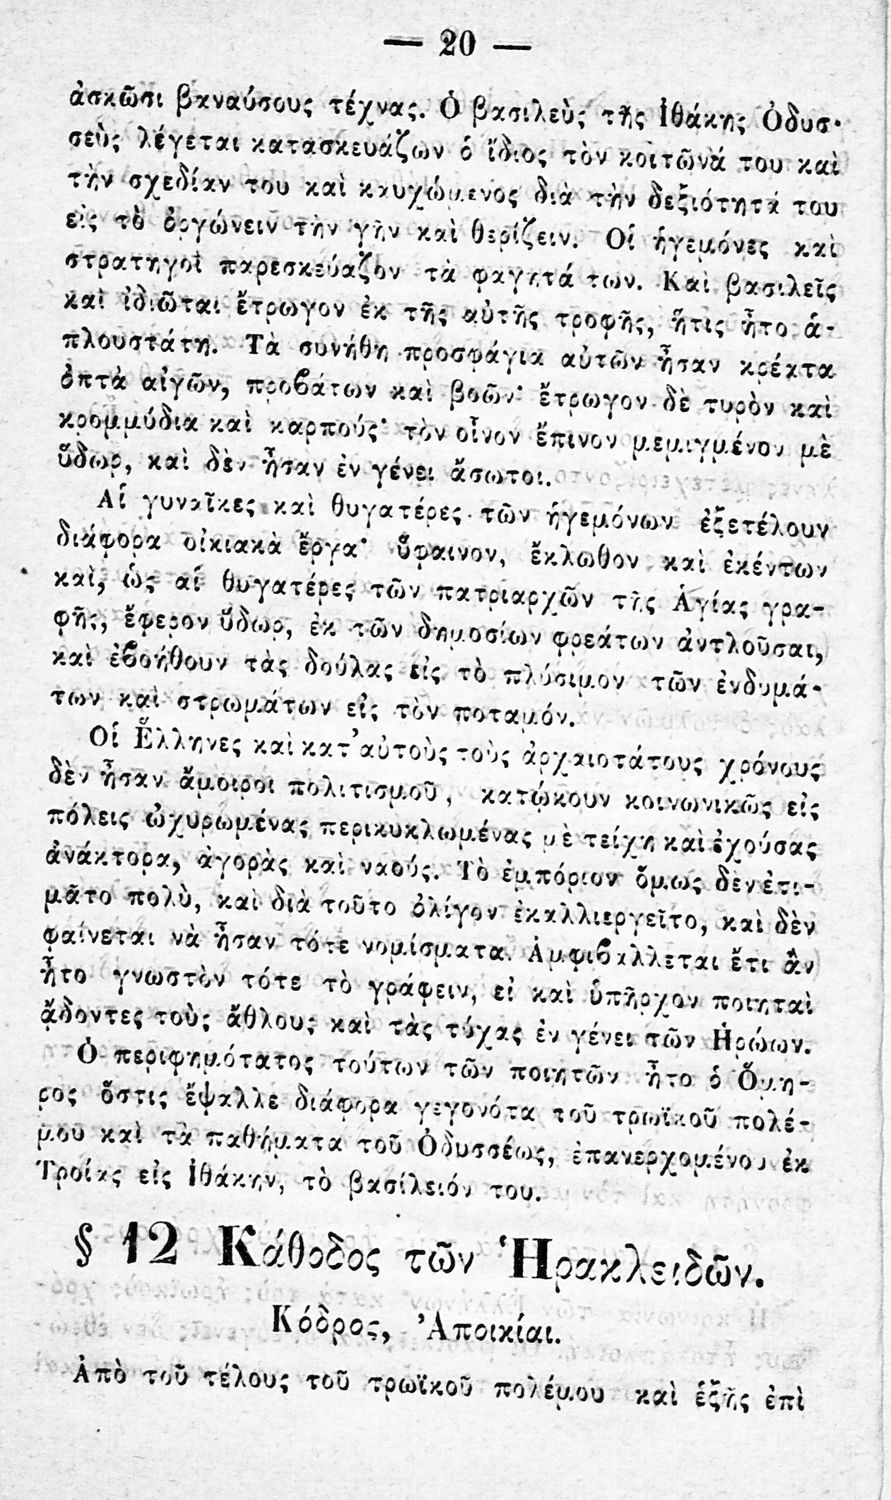 — 20 —
ἀσκῶσι βαναύσους τέχνας. Ὁ βασιλεὺς τῆς Ἰθάκης Ὀδυσ-
σεὺς λέγεται κατασκευάζων ὁ ἴδιος τὸν κοιτῶνά του καὶ
τὴν σχεδίαν του καὶ καυχώμενος διὰ τὴν δεξιότητά του
εἰς τὸ ὀργώνειν τὴν γῆν καὶ θερίζειν. Οἱ ἡγεμόνες καὶ
στρατηγοὶ παρεσκεύαζον τὰ φαγητά των. Καὶ βασιλεῖς
καὶ ἰδιῶται ἔτρωγον ἐκ τῆς αὐτῆς τροφῆς, ἥτις ἦτο ἁ-
πλουστάτη. Τὰ συνήθη προσφάγια αὐτῶν ἦσαν κρέατα
ὀπτὰ αἰγῶν, προβάτων καὶ βοῶν· ἔτρωγον δὲ τυρὸν καὶ
κρομμύδια καὶ καρπούς· τὸν οἶνον ἔπινον μεμιγμένον μὲ
ὕδωρ, καὶ δὲν ἦσαν ἐν γένει ἄσωτοι.
Αἱ γυναῖκες καὶ θυγατέρες τῶν ἡγεμόνων ἐξετέλουν
διάφορα οἰκιακὰ ἔργα· ὕφαινον, ἔκλωθον καὶ ἐκέντων
καὶ, ὡς αἱ θυγατέρες τῶν πατριαρχῶν τῆς Ἁγίας γρα-
φῆς, ἔφερον ὕδωρ, ἐκ τῶν δημοσίων φρεάτων ἀντλοῦσαι,
καὶ ἐβοήθουν τὰς δούλας εἰς τὸ πλύσιμον τῶν ἐνδυμά-
των καὶ στρωμάτων εἰς τὸν ποταμόν.
Οἱ Ἕλληνες καὶ κατ' αὐτοὺς τοὺς ἀρχαιοτάτους χρόνους
δὲν ἦσαν ἄμοιροι πολιτισμοῦ, κατῴκουν κοινωνικῶς εἰς
πόλεις ὠχυρωμένας περικυκλωμένας μὲ τείχη καὶ ἐχούσας
ἀνάκτορα, ἀγορὰς καὶ ναούς. Τὸ ἐμπόριον ὅμως δὲν ἐτι-
μᾶτο πολὺ, καὶ διὰ τοῦτο ὀλίγον ἐκαλλιεργεῖτο, καὶ δὲν
φαίνεται νὰ ἦσαν τότε νομίσματα. Ἀμφιβάλλεται ἔτι ἂν
ἦτο γνωστὸν τότε τὸ γράφειν, εἰ καὶ ὑπῆρχον ποιηταὶ
ᾄδοντες τοὺς ἄθλους καὶ τὰς τύχας ἐν γένει τῶν Ἡρώων.
Ὁ περιφημότατος τούτων τῶν ποιητῶν ἦτο ὁ Ὅμη-
ρος ὅστις ἔψαλλε διάφορα γεγονότα τοῦ τρωϊκοῦ πολέ-
μου καὶ τὰ παθήματα τοῦ Ὀδυσσέως, ἐπανερχομένου ἐκ
Τροίας εἰς Ἰθάκην, τὸ βασίλειόν του.
§ 12 Κάθοδος τῶν Ἡρακλειδῶν.
Κόδρος, Ἀποικίαι.
Ἀπὸ τοῦ τέλους τοῦ τρωϊκοῦ πολέμου καὶ ἑξῆς ἐπὶ